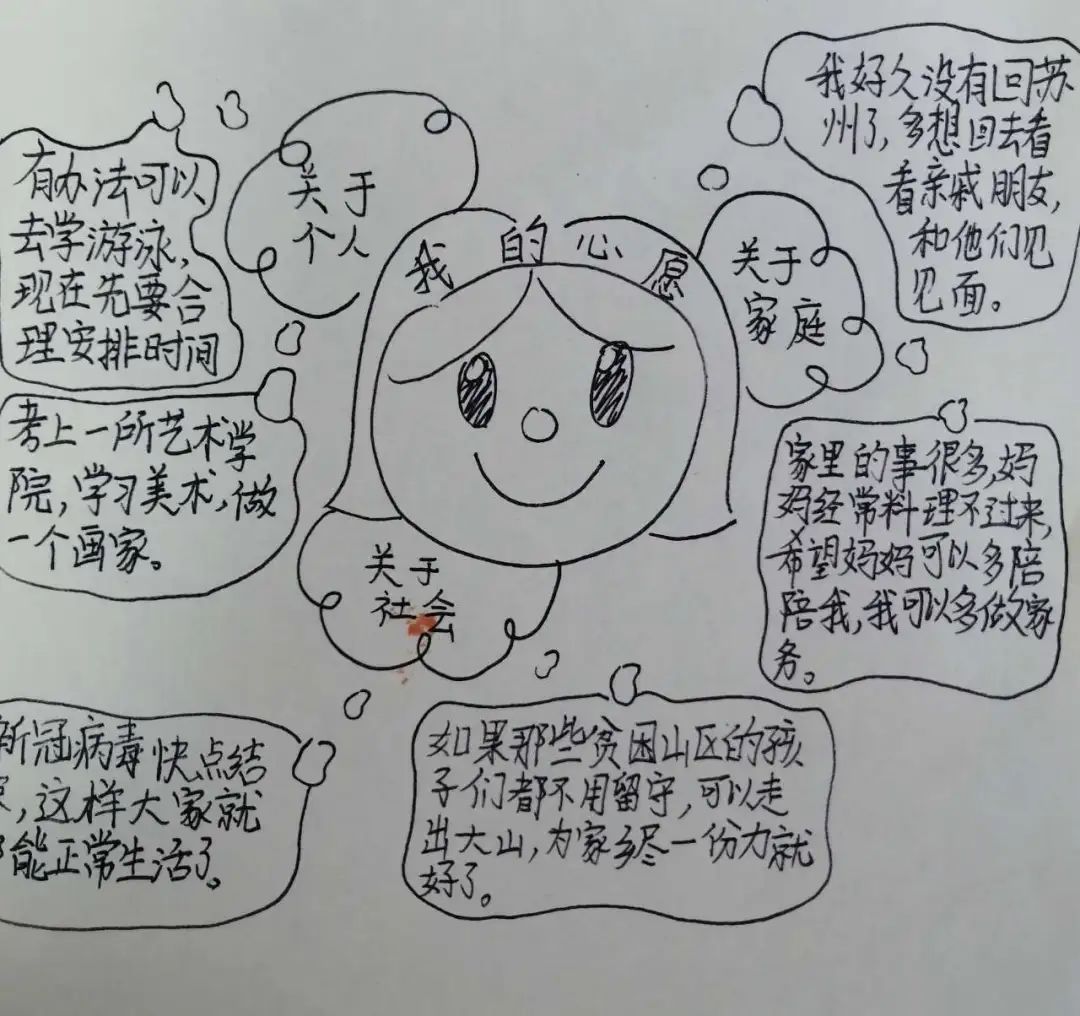 我的心愿
关于
个人
有办法可以
去学游泳，
现在先要合
理安排时间
考上一所艺术学
院，学习美术，做
一个画家。
关于
家庭
我好久没有回苏
州了，多想回去看
看亲戚朋友，
和他们见
见面。
家里的事很多，妈
妈经常料理不过来，
希望妈妈可以多陪
陪我，我可以多做家
务。
关于
社会
新冠病毒快点结
，这样大家就
能正常生活了。
如果那些贫困山区的孩
子们都不用留守，可以走
出大山，为家乡尽一份力就
好了。